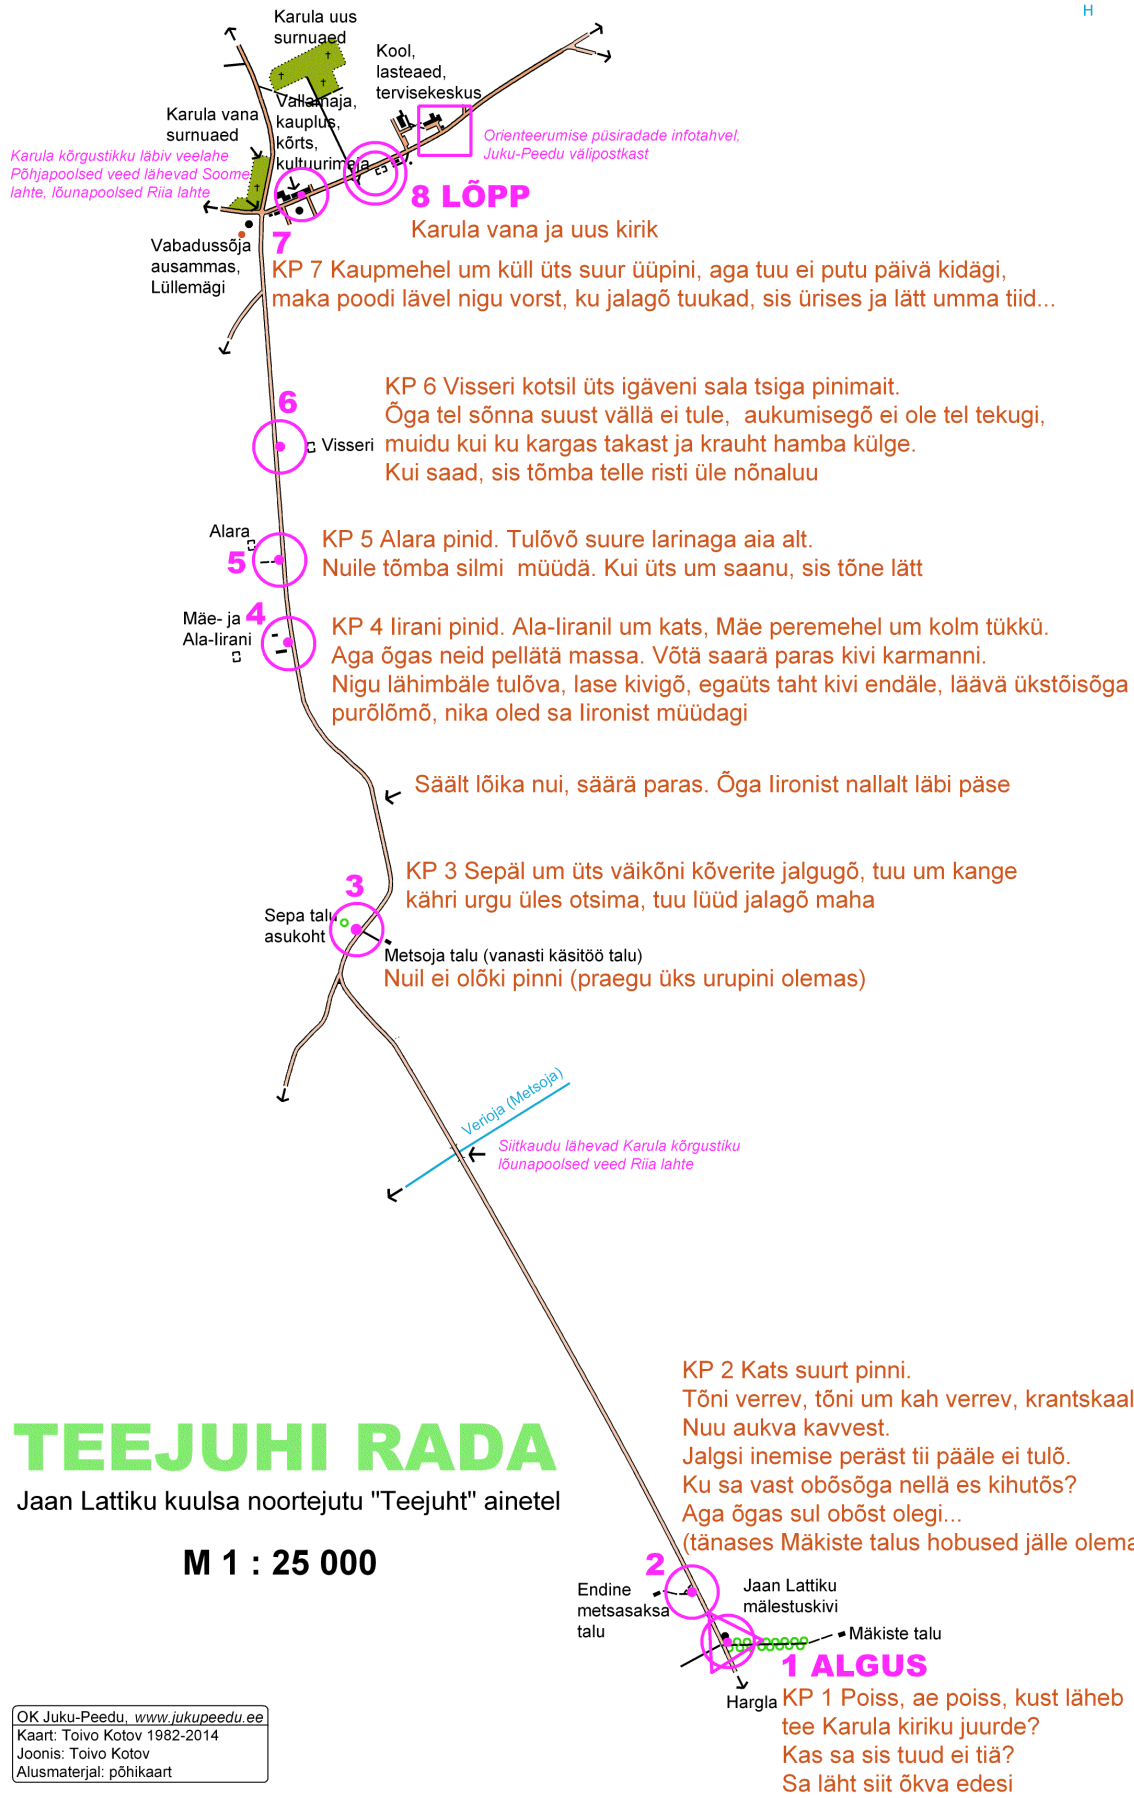 H
Karula uus
surnuaed
Kool,
lasteaed,
tervisekeskus
Vallamaja,
kauplus,
kõrts,
kultuurimaja
Karula vana
surnuaed
Orienteerumise püsiradade infotahvel,
Juku-Peedu välipostkast
Karula kõrgustikku läbiv veelahe
Põhjapoolsed veed lähevad Soome
lahte, lõunapoolsed Riia lahte
8 LÕPP
Karula vana ja uus kirik
7
Vabadussõja
ausammas,
Lüllemägi
KP 7 Kaupmehel um küll üts suur üüpini, aga tuu ei putu päivä kidägi,
maka poodi lävel nigu vorst, ku jalagõ tuukad, sis ürises ja lätt umma tiid...
6
Visseri
KP 6 Visseri kotsil üts igäveni sala tsiga pinimait.
Õga tel sõnna suust vällä ei tule, aukumisegõ ei ole tel tekugi,
muidu kui ku kargas takast ja krauht hamba külge.
Kui saad, sis tõmba telle risti üle nõnaluu
Alara
5
KP 5 Alara pinid. Tulõvõ suure larinaga aia alt.
Nuile tõmba silmi müüdä. Kui üts um saanu, sis tõne lätt
Mäe- ja
Ala-Iirani
4
KP 4 Iirani pinid. Ala-Iiranil um kats, Mäe peremehel um kolm tükkü.
Aga õgas neid pellätä massa. Võtä saarä paras kivi karmanni.
Nigu lähimbäle tulõva, lase kivigõ, egaüts taht kivi endäle, läävä ükstõisõga
purõlõmõ, nika oled sa Iironist müüdagi
Säält lõika nui, säärä paras. Õga Iironist nallalt läbi päse
KP 3 Sepäl um üts väikõni kõverite jalgugõ, tuu um kange
kähri urgu üles otsima, tuu lüüd jalagõ maha
3
Sepa talu
asukoht
Metsoja talu (vanasti käsitöö talu)
Nuil ei olõki pinni (praegu üks urupini olemas)
Verioja (Metsoja)
Siitkaudu lähevad Karula kõrgustiku
lõunapoolsed veed Riia lahte
KP 2 Kats suurt pinni.
Tõni verrev, tõni um kah verrev, krantskaal
Nuu aukva kavvest.
Jalgsi inemise peräst tii pääle ei tulõ.
Ku sa vast obõsõga nellä es kihutõs?
Aga õgas sul obõst olegi...
(tänases Mäkiste talus hobused jälle olema
TEEJUHI RADA
Jaan Lattiku kuulsa noortejutu "Teejuht" ainetel
M 1 : 25 000
2
Endine
metsasaksa
talu
Jaan Lattiku
mälestuskivi
Mäkiste talu
1 ALGUS
Hargla
KP 1 Poiss, ae poiss, kust läheb
tee Karula kiriku juurde?
Kas sa sis tuud ei tiä?
Sa läht siit õkva edesi
OK Juku-Peedu, www.jukupeedu.ee
Kaart: Toivo Kotov 1982-2014
Joonis: Toivo Kotov
Alusmaterjal: põhikaart